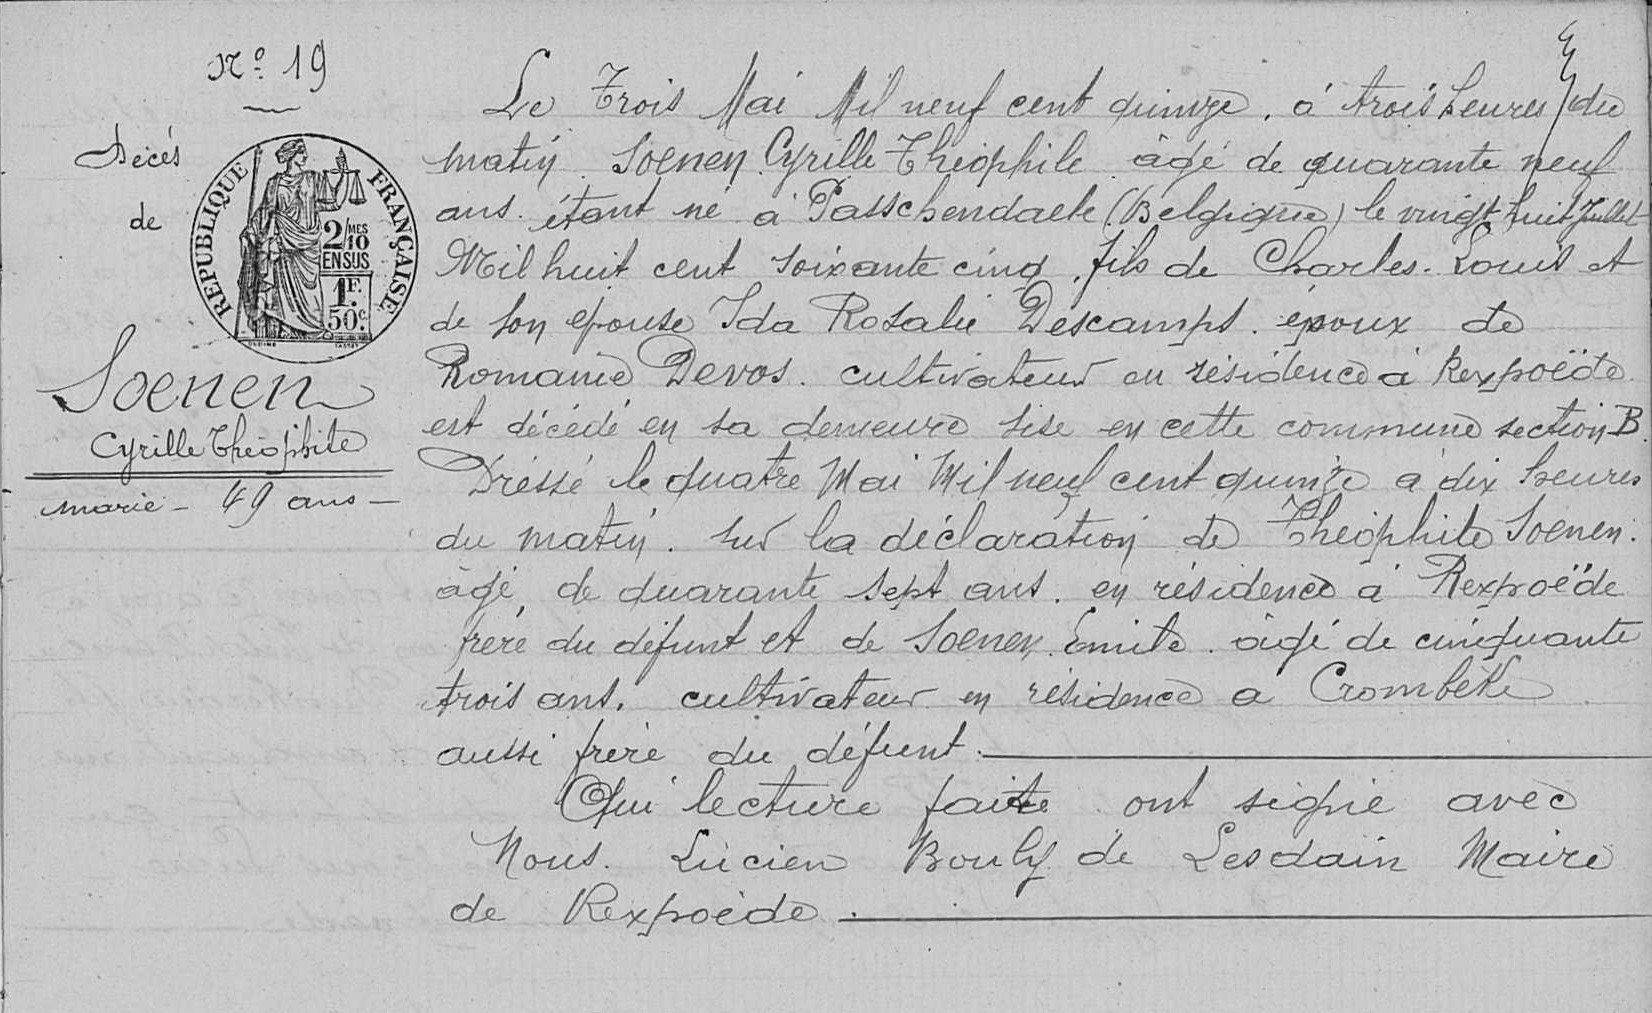 No. 19
Décès
de
RÉPUBLIQUE FRANÇAISE
2/10 MES
EN SUS
1F.
50c.
Soenen
Cyrille Théophile
marié - 49 ans -
Le trois Mai Mil neuf cent quinze, à trois heures du
matin. Soenen Cyrille Théophile âgé de quarante neuf
ans. étant né à Passchendaele (Belgique) le vingt huit Juillet
Mil huit cent soixante cinq, fils de Charles-Louis et
de son épouse Ida Rosalie Descamps. époux de
Romanie Devos. cultivateur en résidence à Rexpoëde
est décédé en sa demeure sise en cette commune section B.
Dressé le quatre Mai Mil neuf cent quinze à dix heures
du matin. sur la déclaration de Théophile Soenen.
âgé, de quarante sept ans. en résidence à Rexpoëde
frère du défunt et de Soenen Emile. âgé de cinquante
trois ans. cultivateur en résidence a Crombeke
aussi frère du défunt.
Qui lecture faite ont signé avec
Nous. Lucien Bouly de Lesdain Maire
de Rexpoëde.